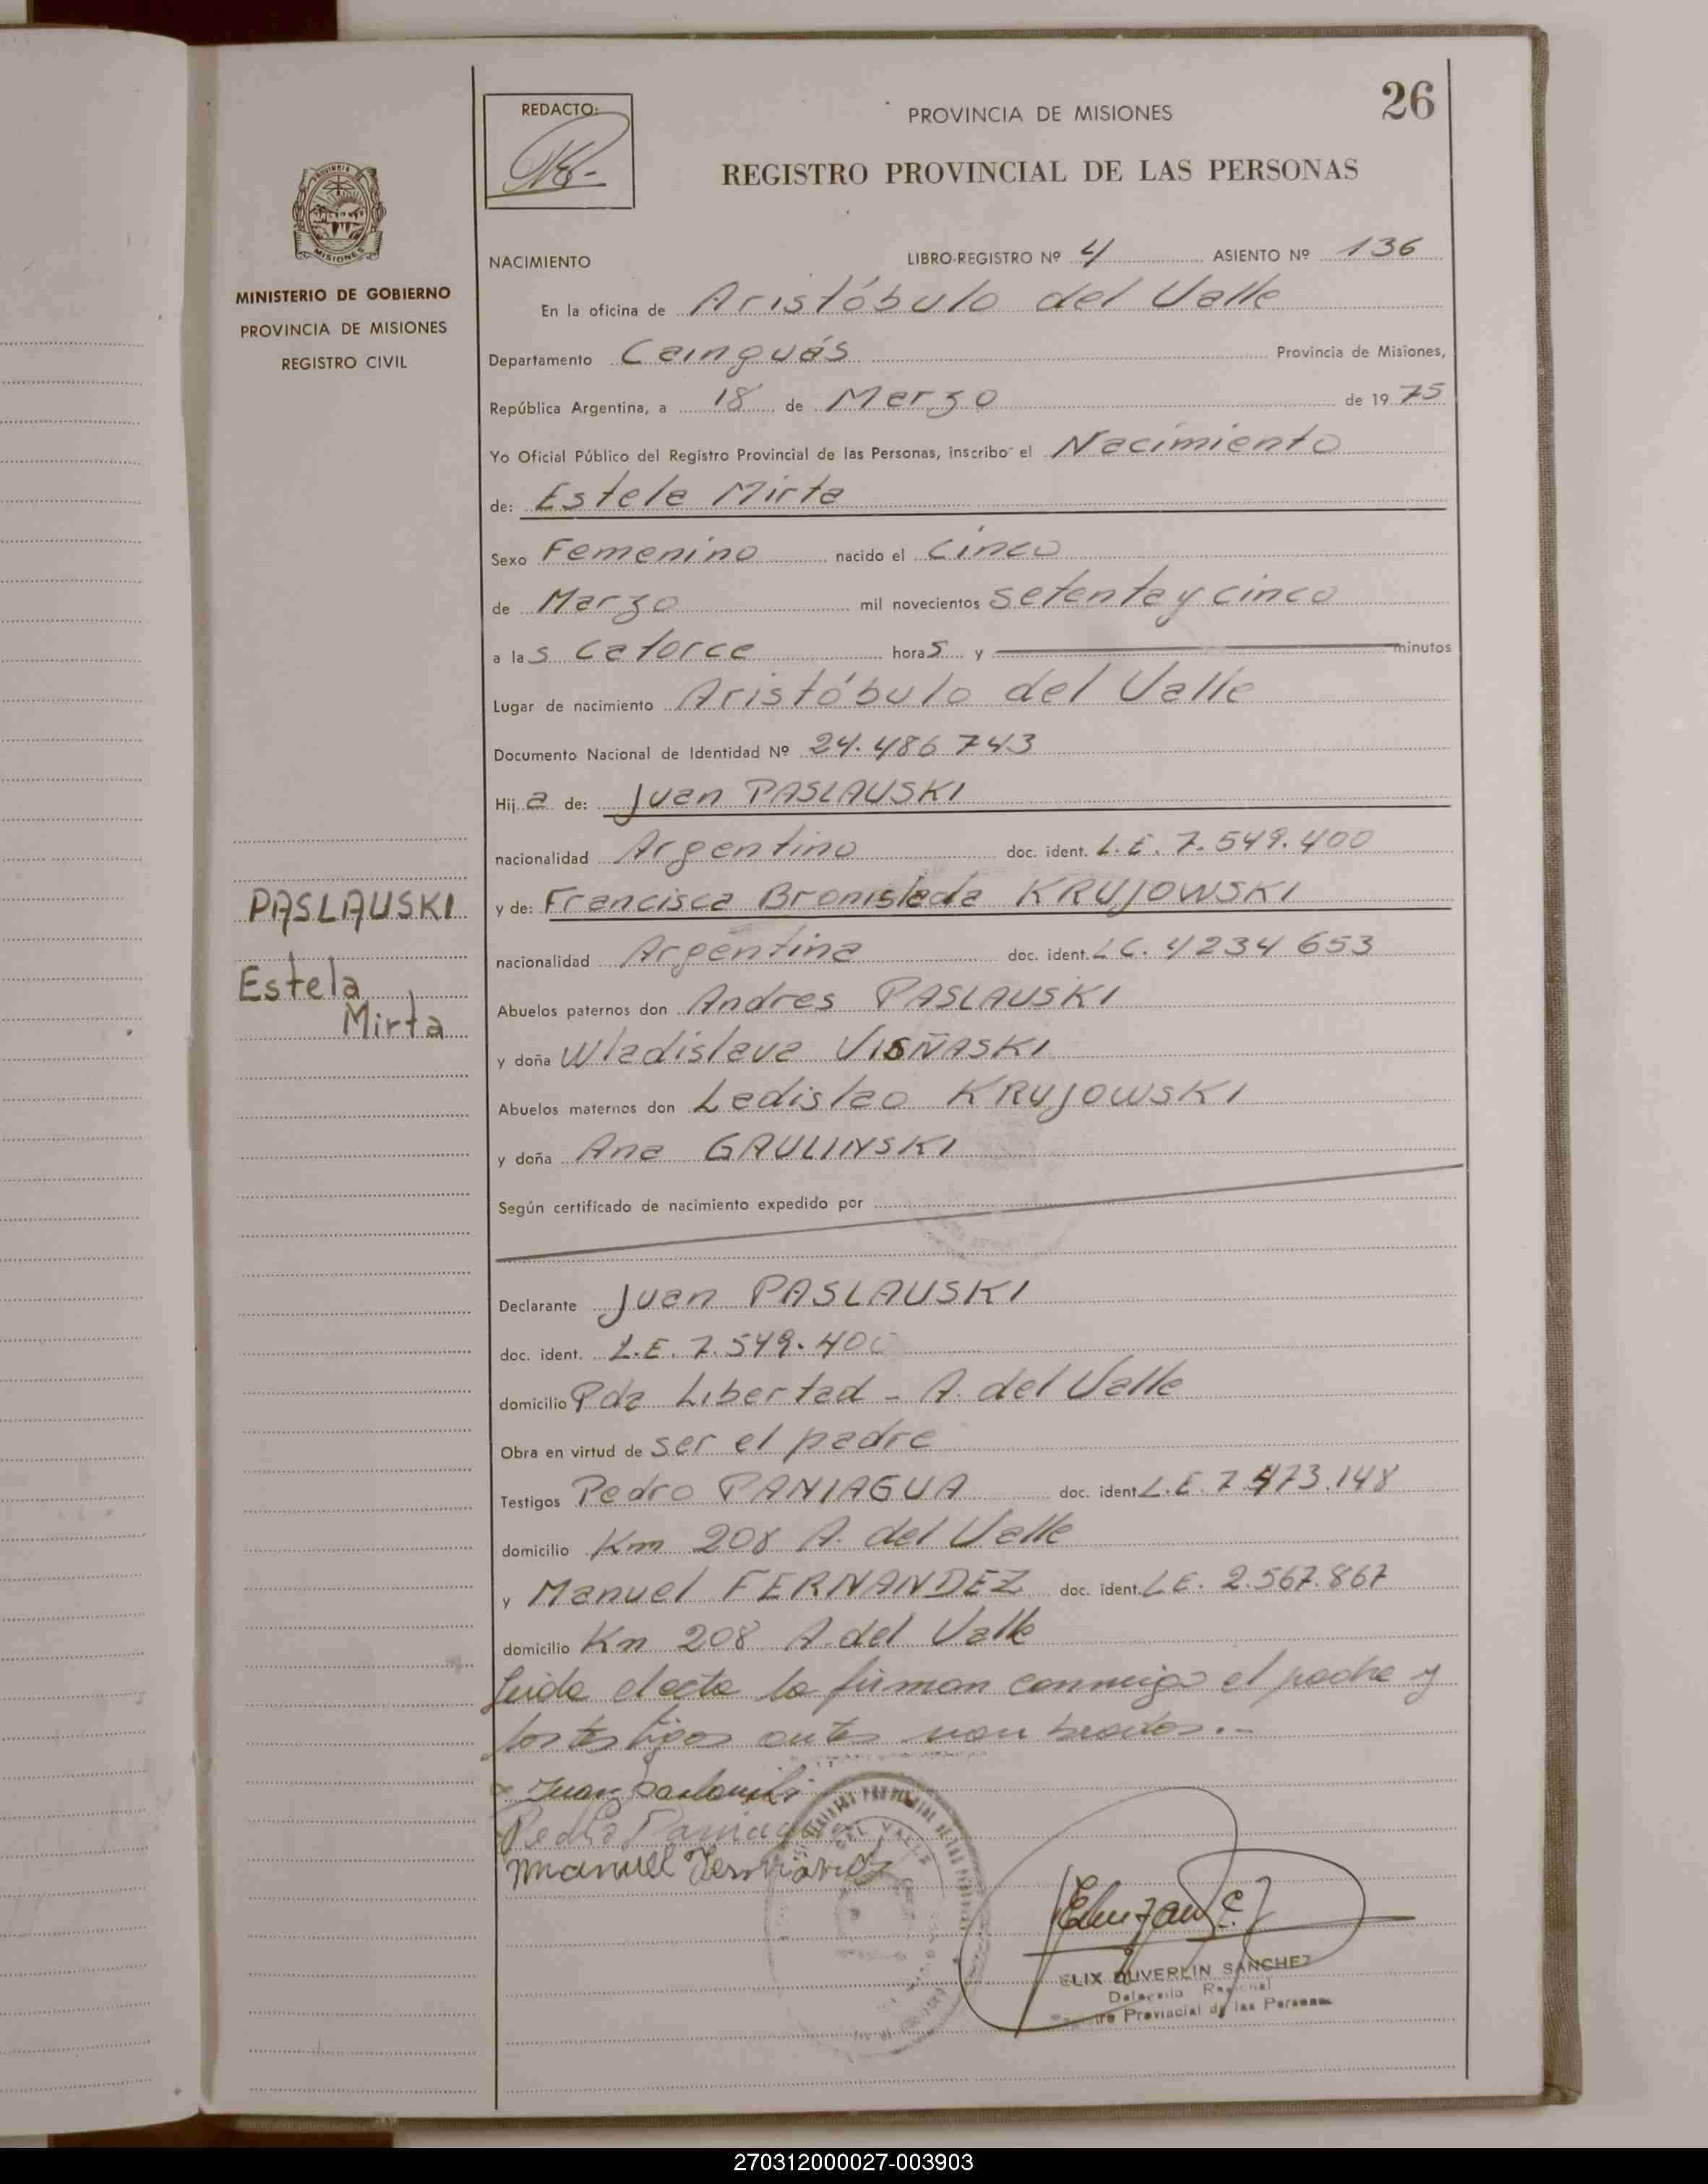 26
REDACTO:
PROVINCIA DE MISIONES
REGISTRO PROVINCIAL DE LAS PERSONAS
MISIONES
MINISTERIO DE GOBIERNO
PROVINCIA DE MISIONES
REGISTRO CIVIL
NACIMIENTO LIBRO-REGISTRO Nº 4 ASIENTO Nº 136
En la oficina de Aristóbulo del Valle
Departamento Cainguás Provincia de Misiones,
República Argentina, a 18 de Marzo de 1975
Yo Oficial Público del Registro Provincial de las Personas, inscribo el Nacimiento
de: Estela Mirta
Sexo Femenino nacido el Cinco
de Marzo mil novecientos setenta y cinco
a las catorce horas y minutos
Lugar de nacimiento Aristóbulo del Valle
Documento Nacional de Identidad Nº 24.486743
Hija de: Juan PASLAUSKI
nacionalidad Argentino doc. ident. L.E. 7.549.400
PASLAUSKI
y de: Francisca Bronislada KRUJOWSKI
nacionalidad Argentina doc. ident. LC. 4234653
Estela
Mirta
Abuelos paternos don Andres PASLAUSKI
y doña Wladislava VISÑASKI
Abuelos maternos don Ladislao KRUJOWSKI
y doña Ana GAULINSKI
Según certificado de nacimiento expedido por
Declarante Juan PASLAUSKI
doc. ident. L.E. 7.549.400
domicilio Pda Libertad - A. del Valle
Obra en virtud de ser el padre
Testigos Pedro PANIAGUA doc. ident. L.E. 7.473.148
domicilio Km 208 A. del Valle
y Manuel FERNANDEZ doc. ident. LE. 2.567.867
domicilio Km 208 A. del Valle
Leida el acta la firman conmigo el padre y
los testigos antes nombrados.-
Juan Paslauski
Pedro Paniagua
Manuel Fernandez
ELIX DUVERLIN SANCHEZ
Delegado Regional
Provincial de las Personas
270312000027-003903